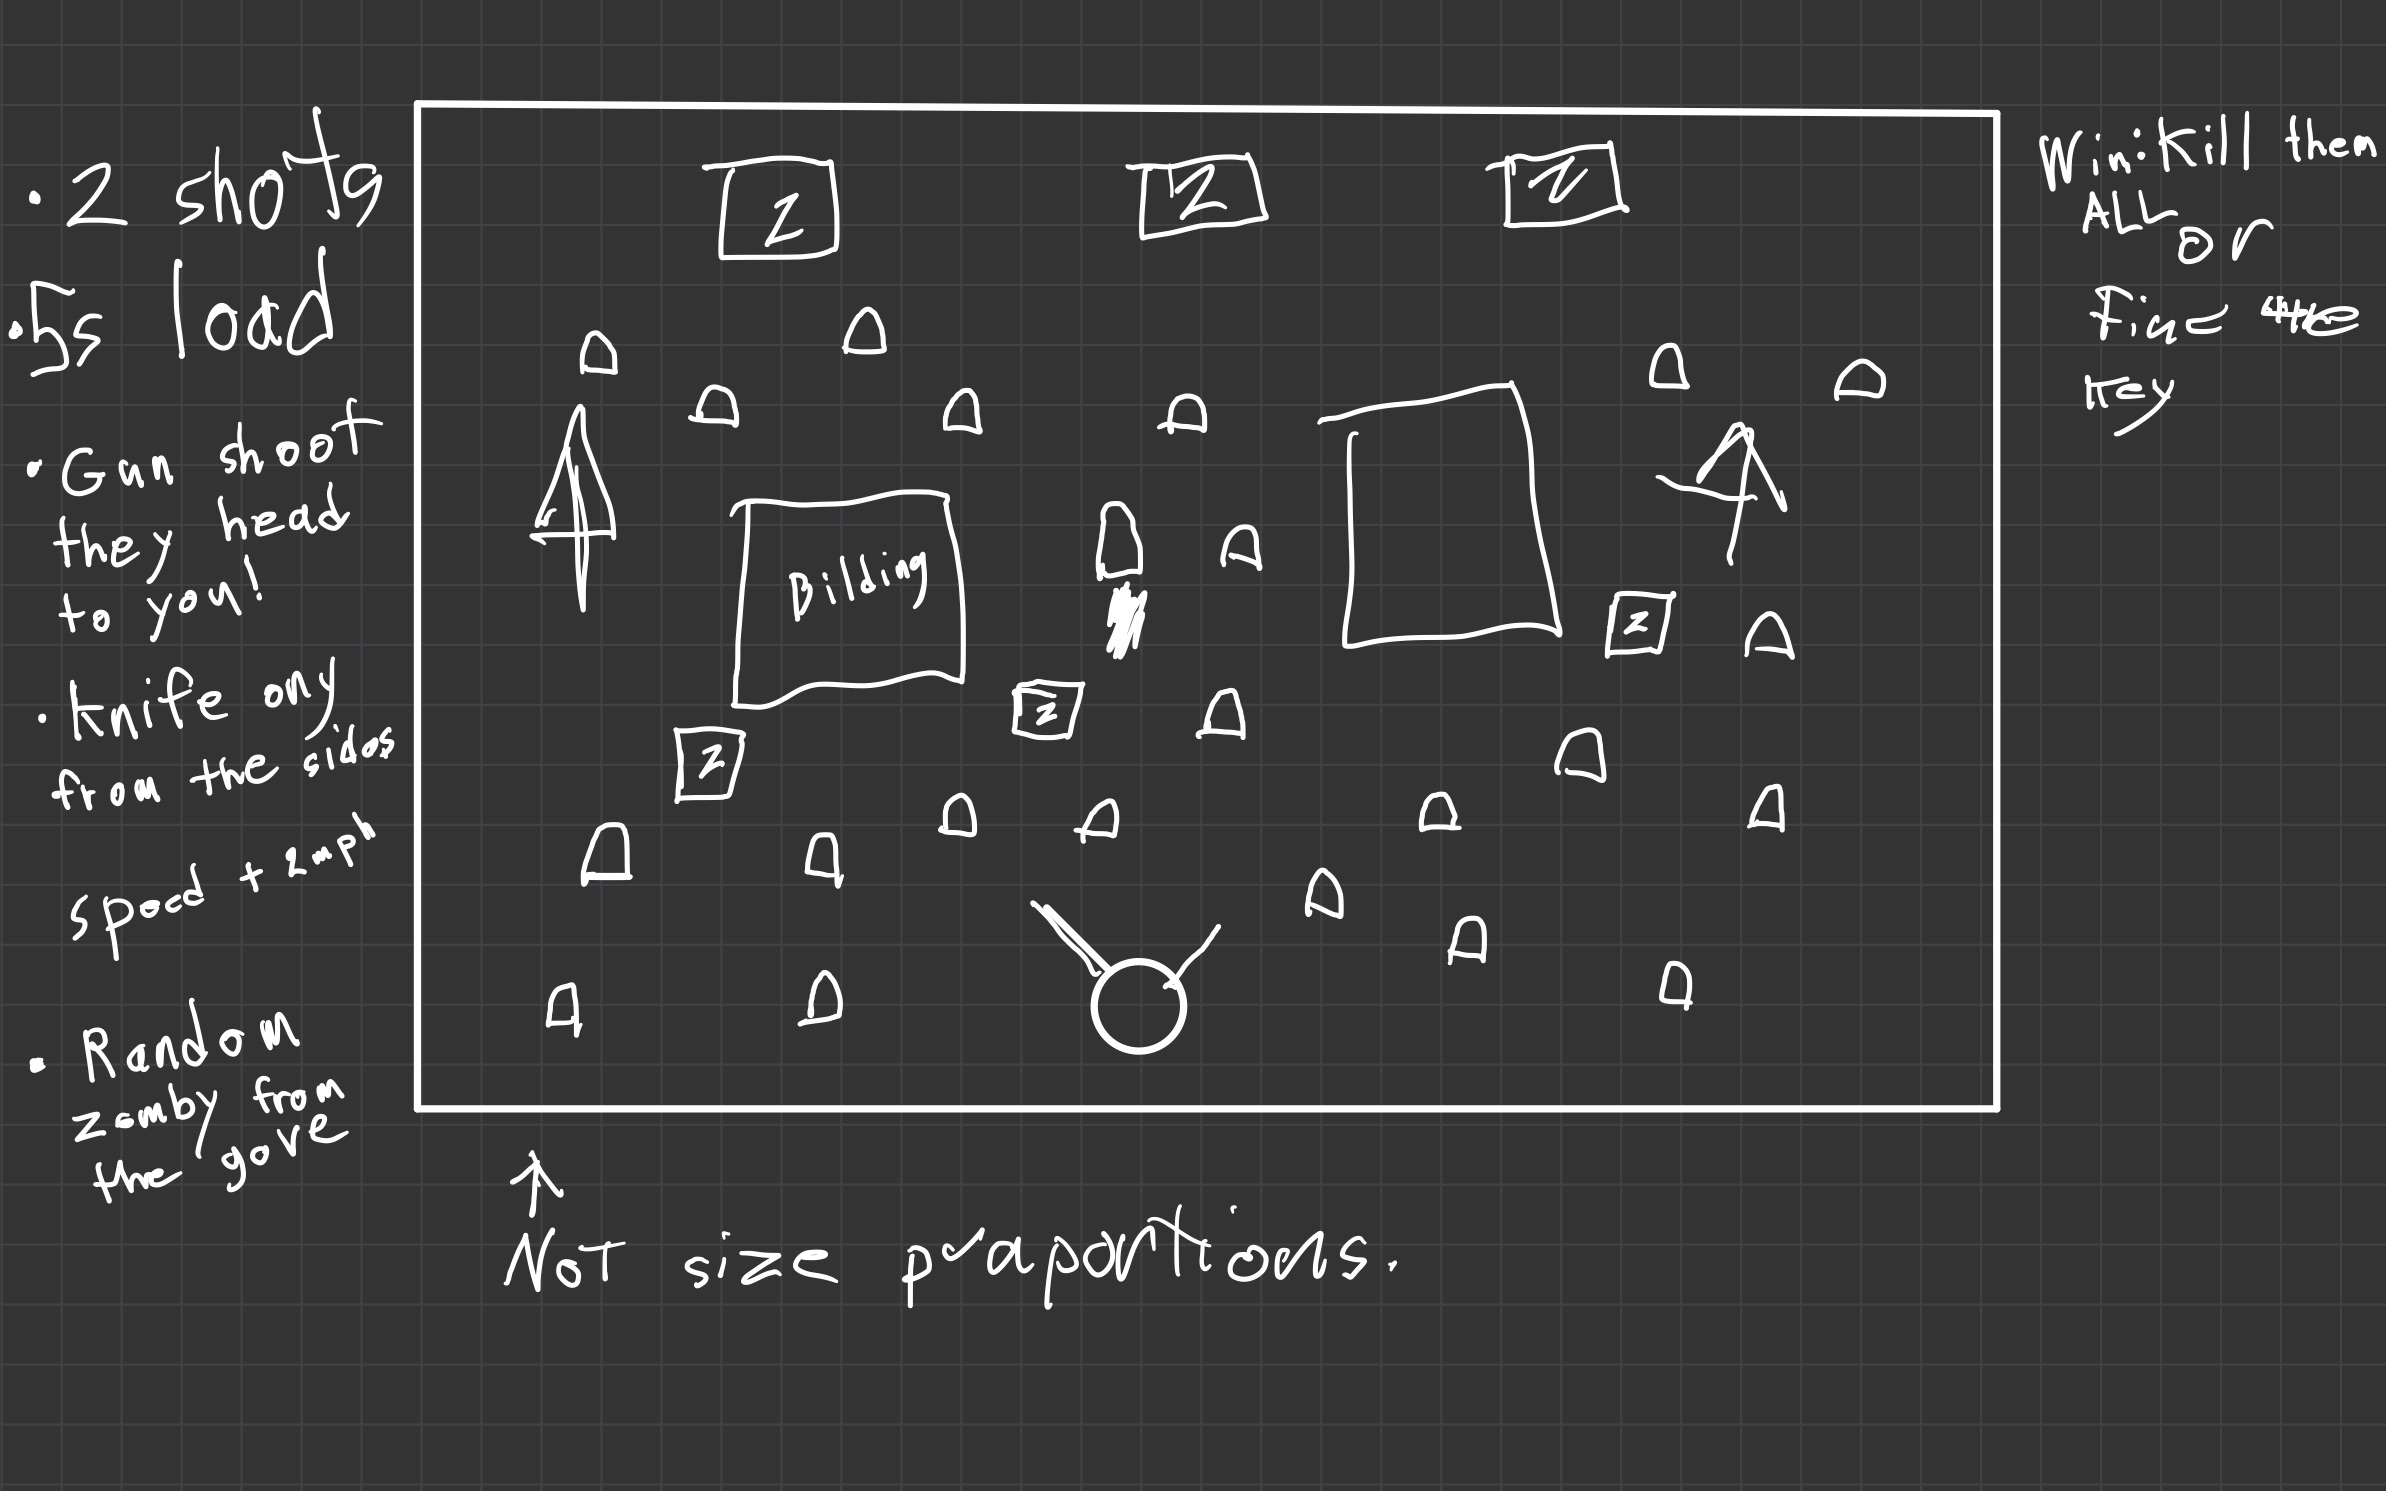 • 2 shots
• 5s load
• Gun shoot
they head
to you!
• Knife ony
from the sidos
spood + 2mph
• Random
zomby from
the gove
Z
Z
Z
Bilding
Z
Z
Z
Win: Kill them
ALL or
the
Key
↑
Not size praportions.